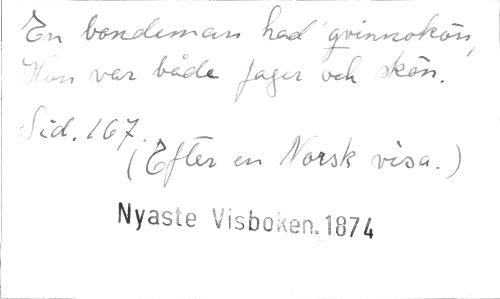 En bondeman had qvinnokön,
Hon var både fager och skön.
Sid. 167.
(Efter en Norsk visa.)
Nyaste Visboken. 1874